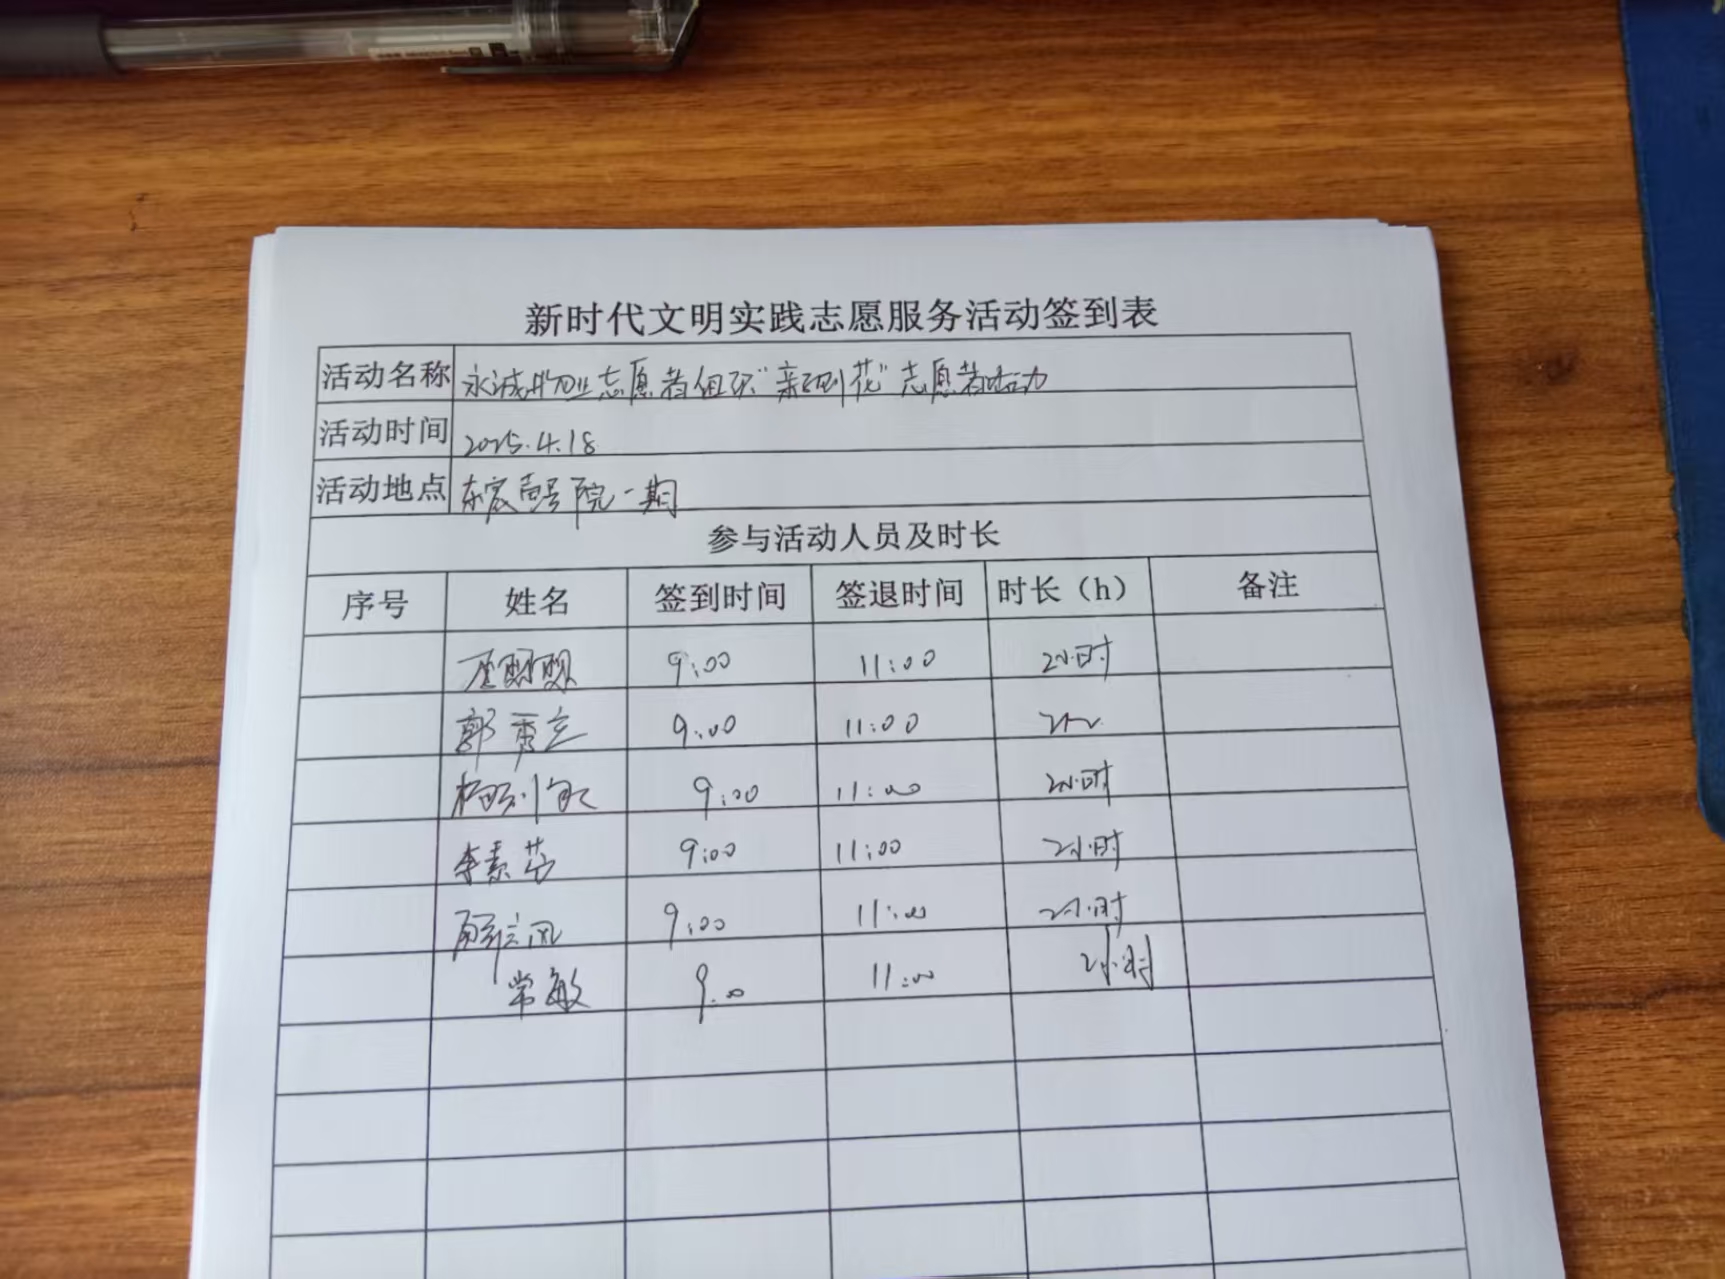 新时代文明实践志愿服务活动签到表
活动名称 永诚物业志愿者组织"亲子到花"志愿者活动
活动时间 2025.4.18
活动地点 东宸壹号院一期
参与活动人员及时长
序号 姓名 签到时间 签退时间 时长（h） 备注
9:00 11:00 2小时
郭秀立 9:00 11:00
9:00 11:00 2小时
李素芬 9:00 11:00 2小时
9:00 11:00 2小时
常敏 9:00 11:00 2小时